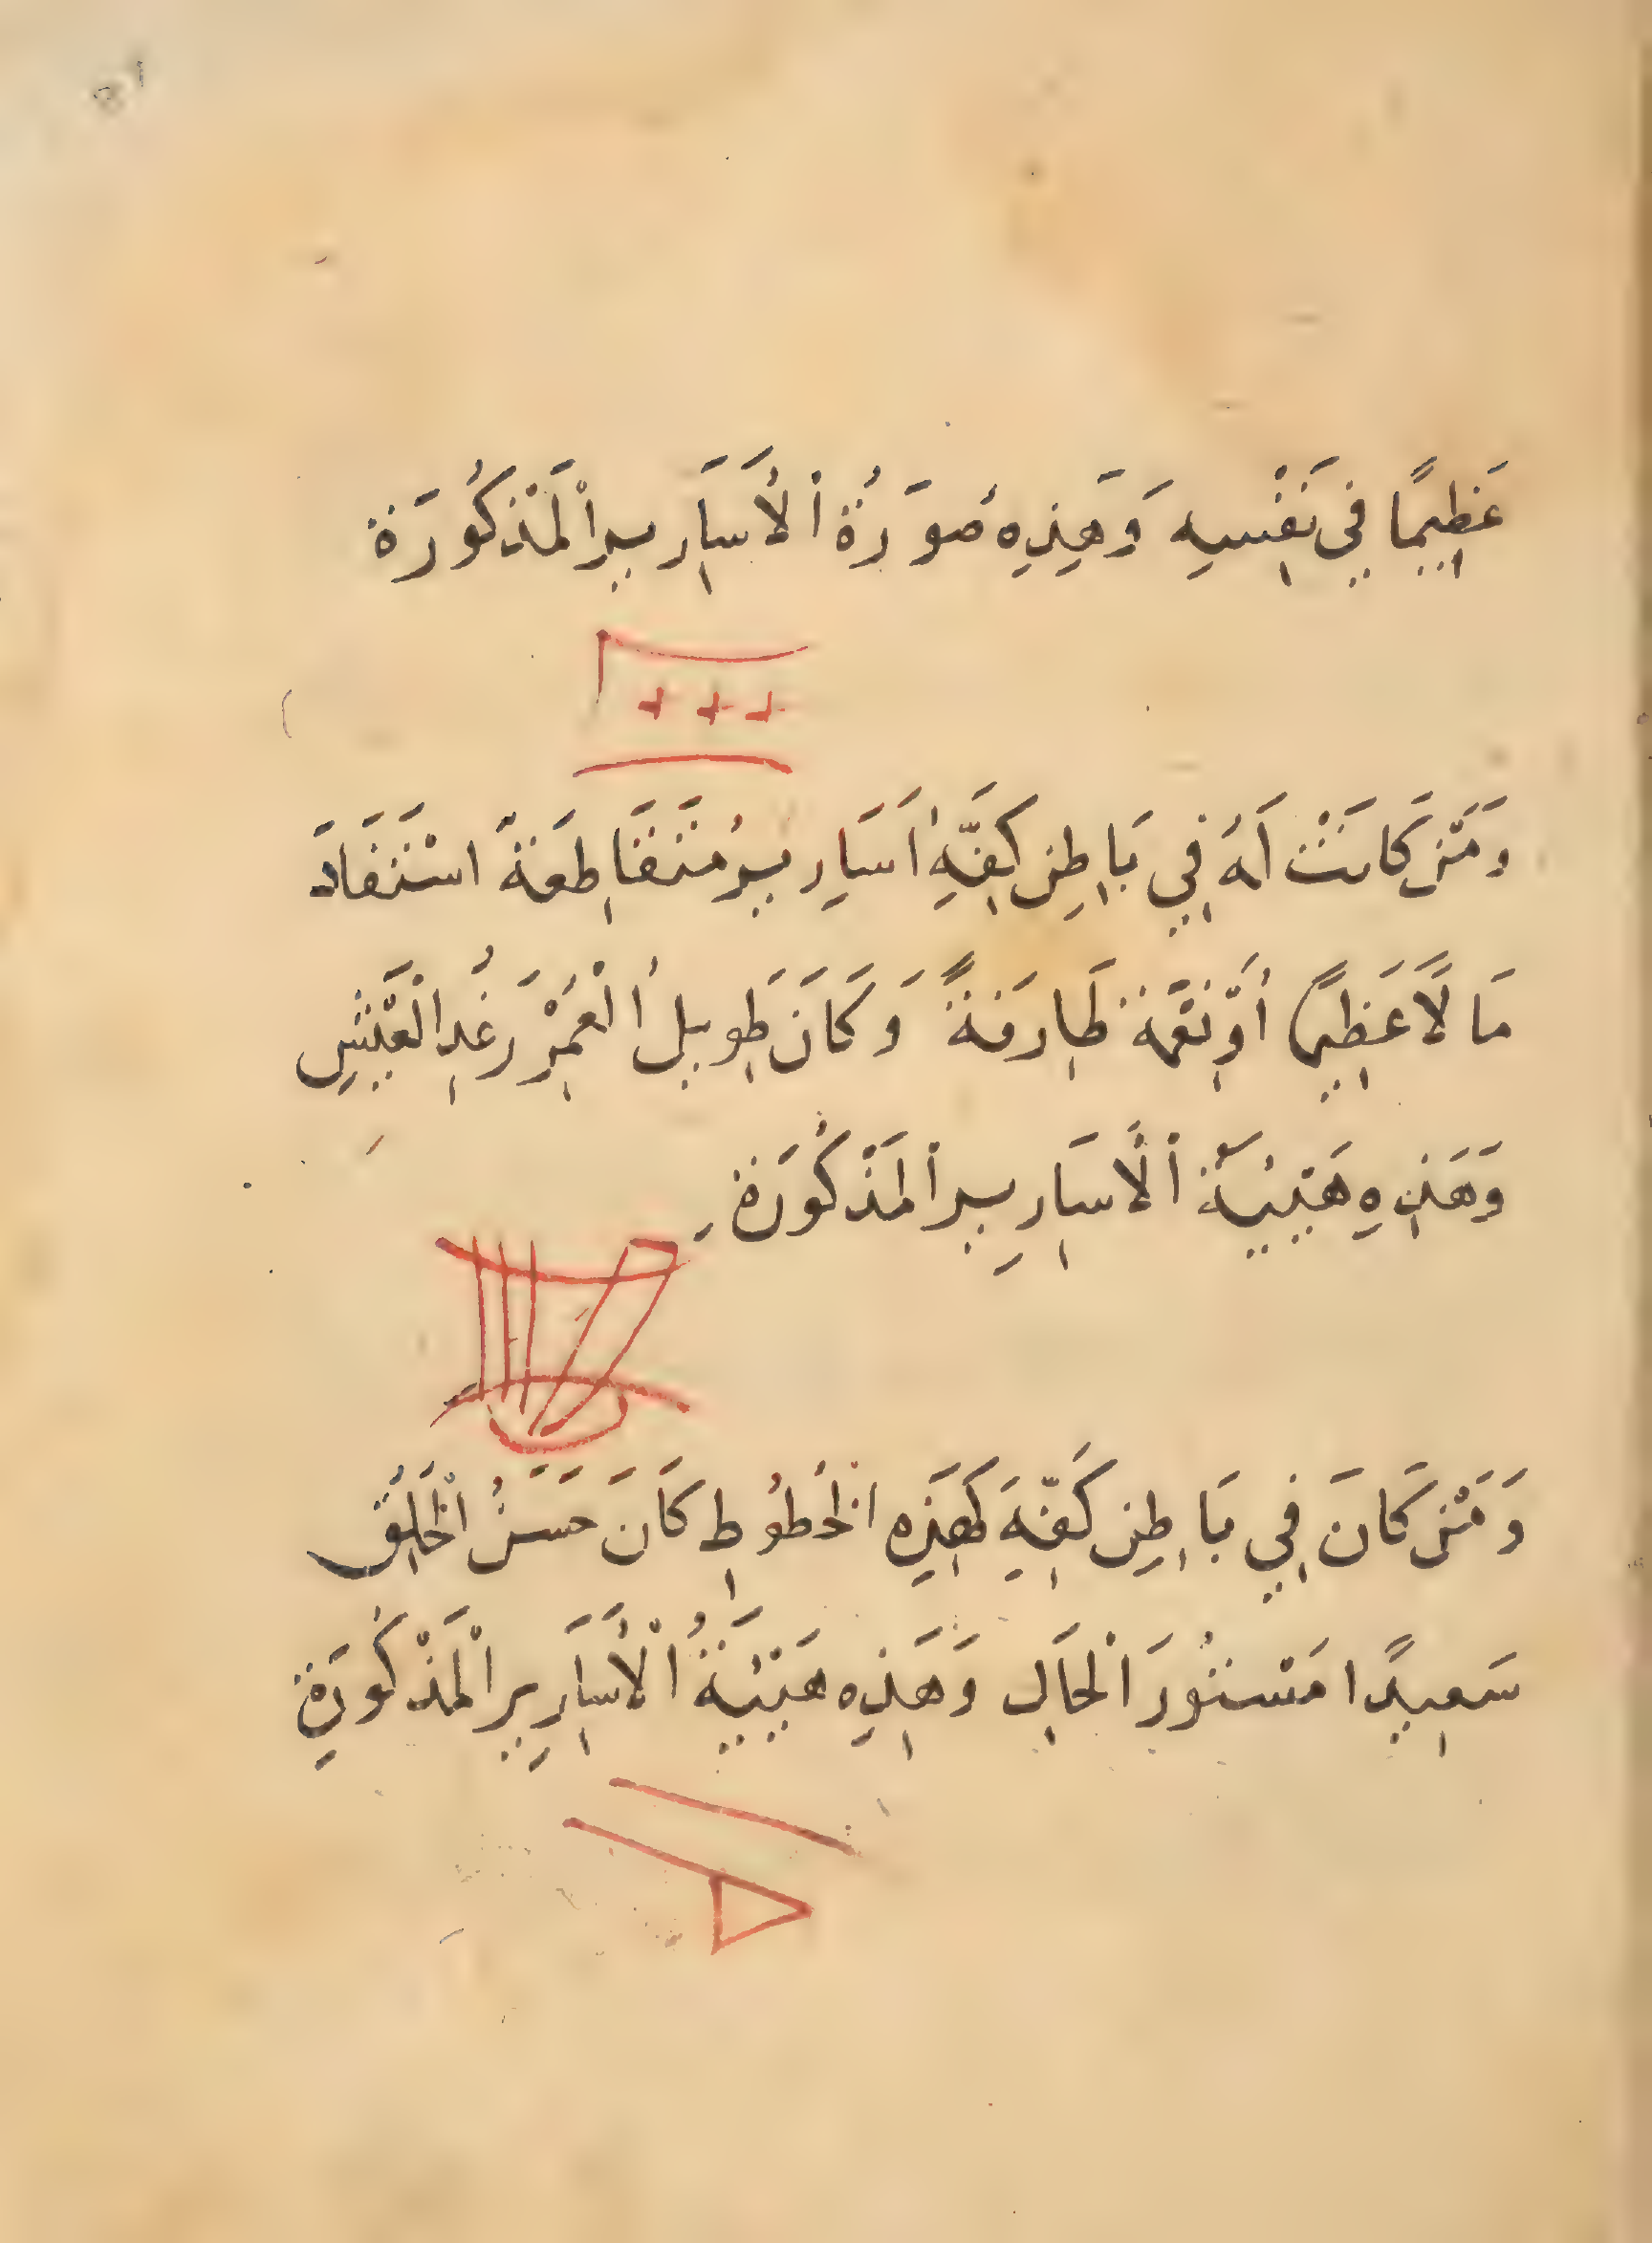 عَظِيمًا فِي نَفْسِهِ وَهَذِهِ صُورَةُ الْأَسَارِيرِ الْمَذْكُورَة
وَمَنْ كَانَتْ لَهُ فِي بَاطِنِ كَفِّهِ أَسَارِيرُ مُتَقَاطِعَةٌ اسْتَفَادَ
مَالًا عَظِيمًا أَوْ نِعْمَة طَارِفَةً وَكَانَ طَوِيلُ الْعُمْرِ رَغْدِ الْعَيْشِ
وَهَذِهِ هَيْئَةُ الْأَسَارِيرِ الْمَذْكُورَةِ
وَمَنْ كَانَ فِي بَاطِنِ كَفِّهِ كَهَذِهِ الْخُطُوطِ كَانَ حَسَنُ الْخُلُقِ
سَعِيدًا مَسْتُورَ الْحَالِ وَهَذِهِ هَيْئَةُ الْأَسَارِيرِ الْمَذْكُورَةِ